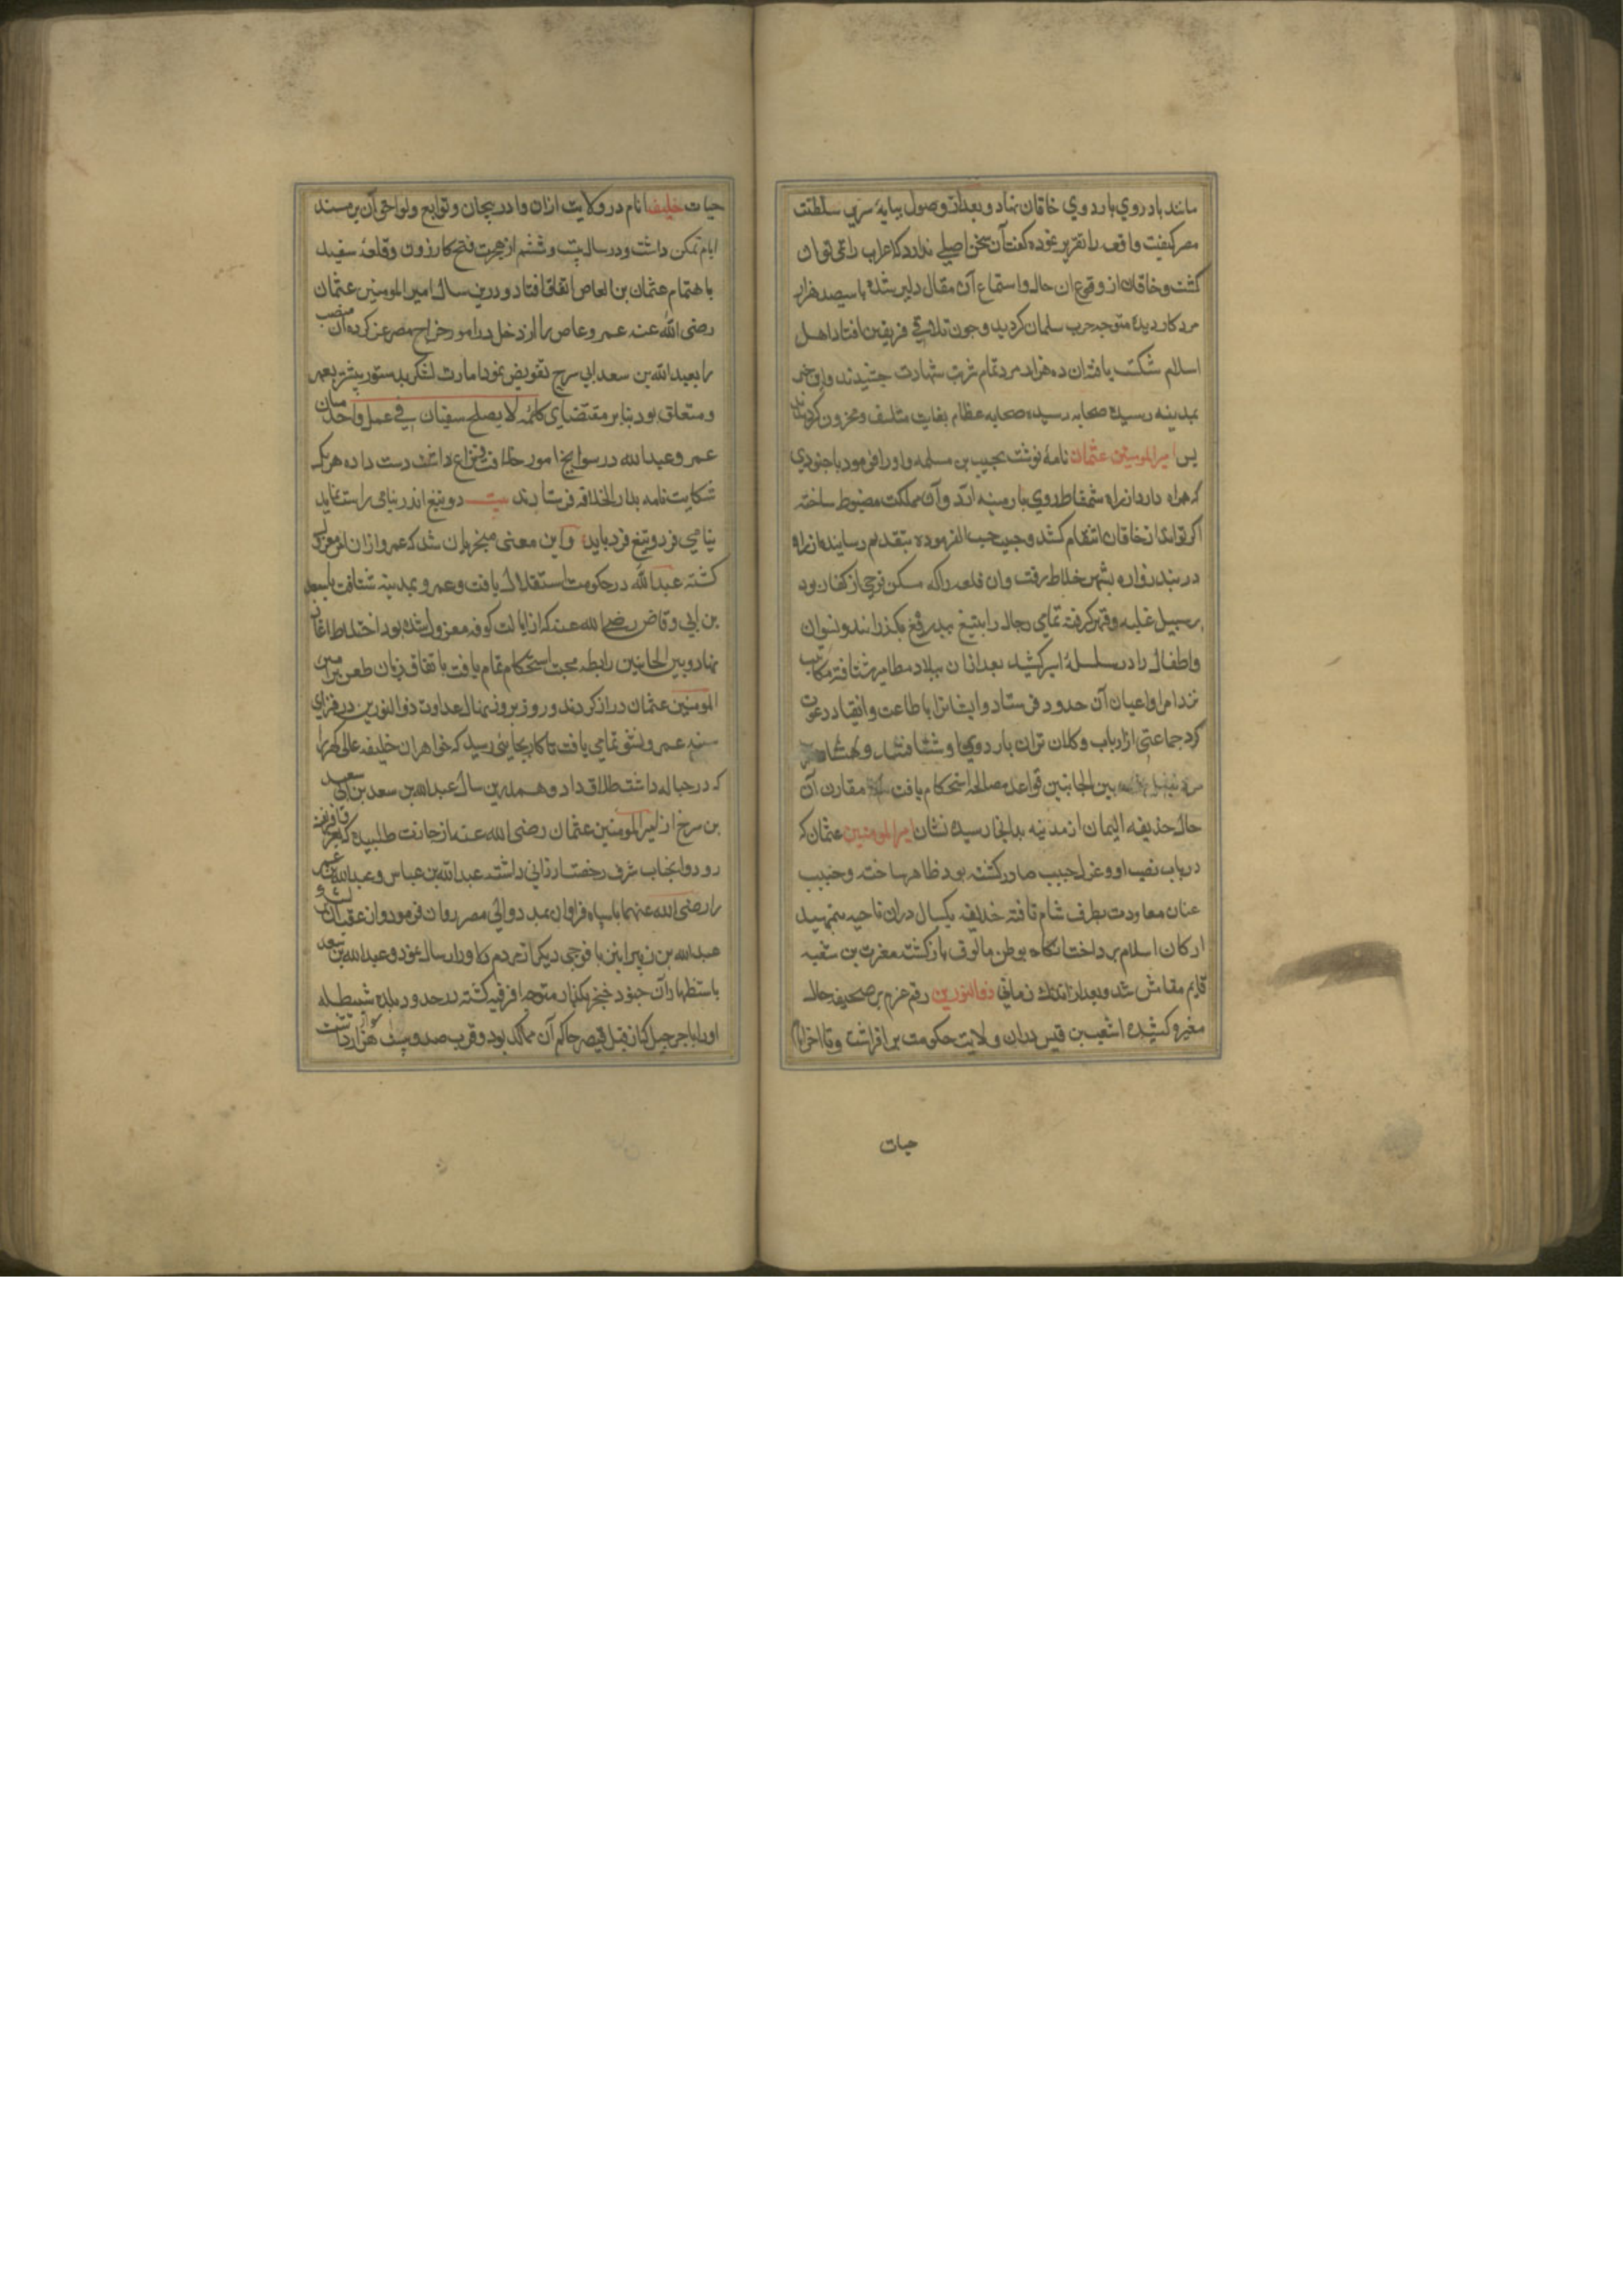 مانند باد روي باردوي خاقان نهاد و بعد از وصول بپايه سرير سلطنت
مصر كيفيت واقعه را تقرير نموده كفت آن سخن اصلي ندارد كه اعراب را نمي توان
كشت و خاقان از وقوع ان حال و استماع آن مقال دلير شده با سيصد هزار
مرد كار ديده متوجه حرب سلمانان كرديد و چون تلاقي فريقين افتاد اهل
اسلام شكست يافته ان ده هزار مرد تمام شربت شهادت چشيدند و اين خبر
بمدينه رسيده صحابه رسيده صحابه عظام بغايت متاسف و محزون كرديدند
پس امير المومنين عثمان نامۀ نوشت بحبيب بن مسلمه و او را فرمود با جنودي
كه همراه دارد از راه شمشاط روي بارمينه ارد و آن مملكت مضبوط ساخته
اكر تواند از خاقان انتقام كشد و حبيب حسب الفرموده بتقديم رسانيده از راه
دربند زواره بشهر خلاط رفت و ان قلعه را كه مسكن فوجي از كفار بود
بر سبيل غلبه و قهر كرفته تمامي رجال را بتيغ بيدريغ بكذرانيد و نسوان
و اطفال را در سلسلۀ اسر كشيد بعد از ان ببلاد مطامير شتافته مكاتيب
نزد امرا و اعيان آن حدود فرستاد و ايشانرا باطاعت و انقياد دعوت
كرد جماعتي از ارباب و كلان تران باردوي او شتافتند و هشتاد
بين الجانبين قواعد مصالحه استحكام يافت مقارن آن
حال حذيفه اليمان از مدينه بدانجا رسيده نشان امير المومنين عثمان كه
در باب نصب او و عزل حبيب صادر كشته بود ظاهر ساخت و حبيب
عنان معاودت بطرف شام تافته حذيفه يكسال دران ناحيه بتمهيد
اركان اسلام پرداخت انكاه بوطن مالوف باز كشت مغيرت بن شعبه
قايم مقامش شد و بعد از اندك زماني ذو النورين رقم عزم بر صحيفه حال
مغيره كشيده اشعث بن قيس دران ولايت حكومت بر افراشت و تا اخر ايام
حيات
حيات خليفه انام در ولايت اران و ادربيجان و توابع و لواحق آن بر مسند
ايام تمكن داشت و در سال بيست و ششم از هجرت فتح كازرون و قلعۀ سفيد
باهتمام عثمان بن العاص اتفاق افتاد و درين سال امير المومنين عثمان
رضى الله عنه عمرو عاص را از دخل در امور خراج مصر عزل كرده آن منصب
را بعبد الله بن سعد ابي سرح تفويض نمود امارت لشكر بدستور پيشتر بعمر
و متعلق بود بنابر مقتضاي كلمۀ لا يصلح سفيان في عمل واحد ميان
عمرو عبد الله در سوانح امور خلافت نزاع داشته دست داده هر يك
شكايت نامه بدار الخلافه فرستادند بيت دو تيغ اندر نيامي راست نايد
نيامي فرد و تيغ فرد بايد و اين معنى منجر بان شد كه عمرو از ان امر معزول
كشته عبد الله در حكومت استقلال يافت و عمرو بمدينه شتافت با سعد
بن ابي وقاص رضي الله عنه كه از ايالت كوفه معزول شده بود اختلاط اغاز
نهاد و بين الجانبين رابطه محبت استحكام تمام يافت باتفاق زبان طعن بر امير
المومنين عثمان دراز كردند و روز بروز نهال عداوت ذو النورين در فزاي
سينه عمرو نشو تمامي يافت تا كار بجايي رسيد كه خواهران خليفه عالي كهر را
كه در حباله داشت طلاق داد و همدرين سال عبد الله بن سعد بن ابي
بن سرح از امير المومنين عثمان رضى الله عنه اجازت طلبيده كه بغزو افريقيه
رود و انجناب شرف رخصت ارزاني داشته عبد الله بن عباس و عبد الله بن عمر
را رضى الله عنهما با سپاه فراوان بمدد والي مصر روان فرمود و از عقب آن لشكر
عبد الله بن زبير را نيز با فوجي ديكر از مردم دلاور ارسال نمود و عبد الله بن سعد
باستظهار آن جنود خنجر كذار متوجه افريقيه كشته در حدود بلده شبيطله
او را با جرجيل كه از قبل قيصر حاكم آن ممالك بود و قرب صد و بيست هزار سوار داشت